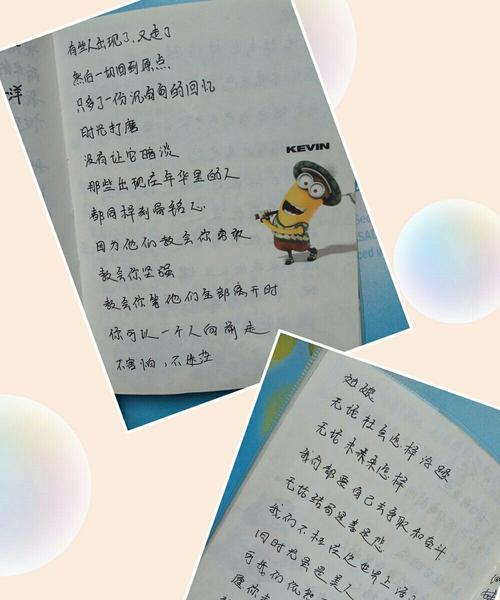 洋
有些人出现了，又走了
然后一切回到原点
只多了一份沉甸甸的回忆
时光打磨
没有让它暗淡
那些出现在年华里的人
都同样刻骨铭心
因为他们教会你勇敢
教会你坚强
教会你等他们全部离开时
你可以一个人向前走
不害怕，不迷茫
KEVIN
无论社会怎样
无论未来怎样
我们都要自己去争取和奋斗
无论结局是喜是悲
我们不枉在这世界上活
旧时光是美人
可我们依
愿你